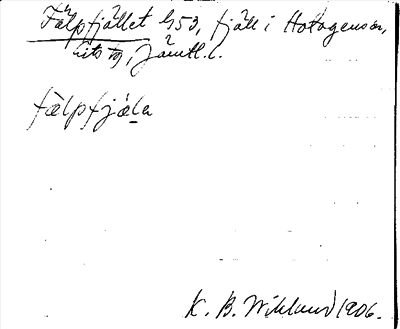 Fälpfjället 453, fjäll i Hotagens sn,
Lits tg, Jämtl. l.
fälpfjäla
K. B. Wiklund 1906.